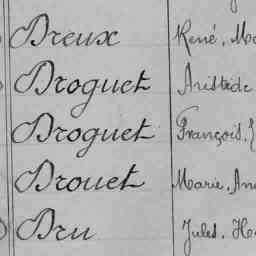 Dreux René. Ma
Droguet Aristide
Droguet François. E
Drouet Marie. An
Dru Jules. H